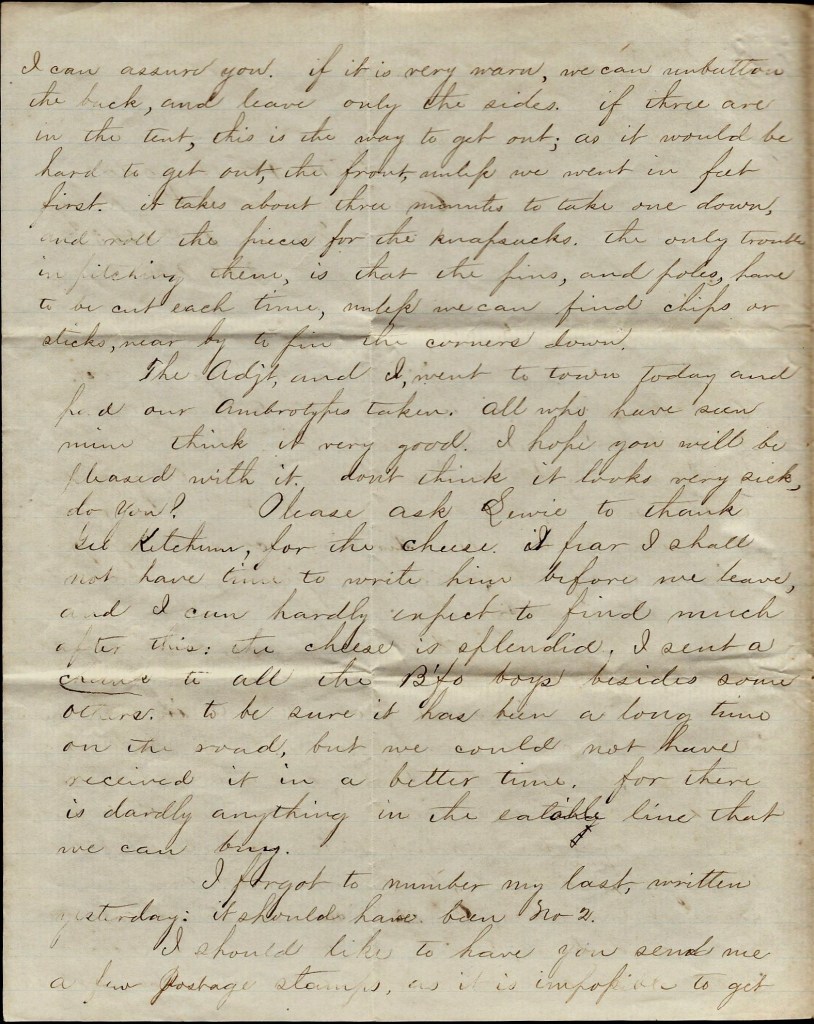 I can assure you. if it is very warm, we can unbutton
the back, and leave only the sides. if three are
in the tent, this is the way to get out; as it would be
hard to get out, the front, unless we went in feet
first. it takes about three minutes to take one down,
and roll the pieces for the knapsacks. the only trouble
in pitching them, is that the pins, and poles, have
to be cut each time, unless we can find chips or
sticks, near by to pin the corners down.
The Adjt, and I, went to town today and
had our Ambrotypes taken. all who have seen
mine think it very good. I hope you will be
pleased with it. dont think it looks very sick,
do you? Please ask Lewie to thank
Ketchum, for the cheese. I fear I shall
not have time to write him before we leave,
and I can hardly expect to find much
after this: the cheese is splendid. I sent a
to all the B'fo boys besides some
others. to be sure it has been a long time
on the road, but we could not have
received it in a better time. for there
is dardly anything in the eatable line that
we can buy.
I forgot to number my last, written
yesterday: it should have been No 2.
I should like to have you send me
a few Postage stamps, as it is impossible to get